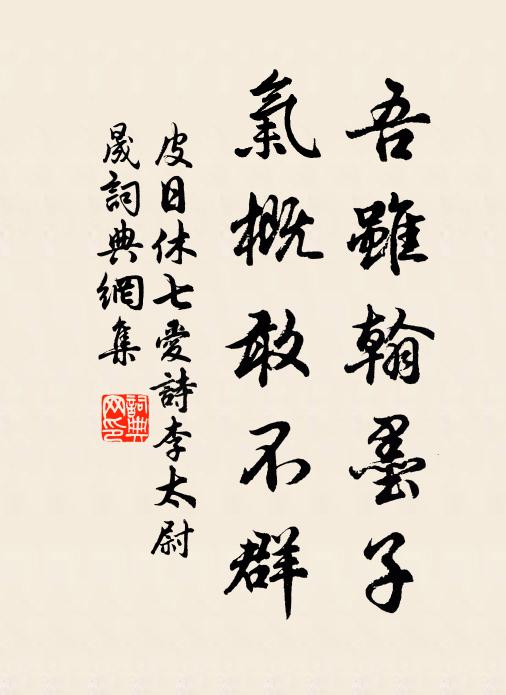 吾雖翰墨子
氣概敢不群
皮日休七愛詩李太尉
晟詞典網集
詞典網印